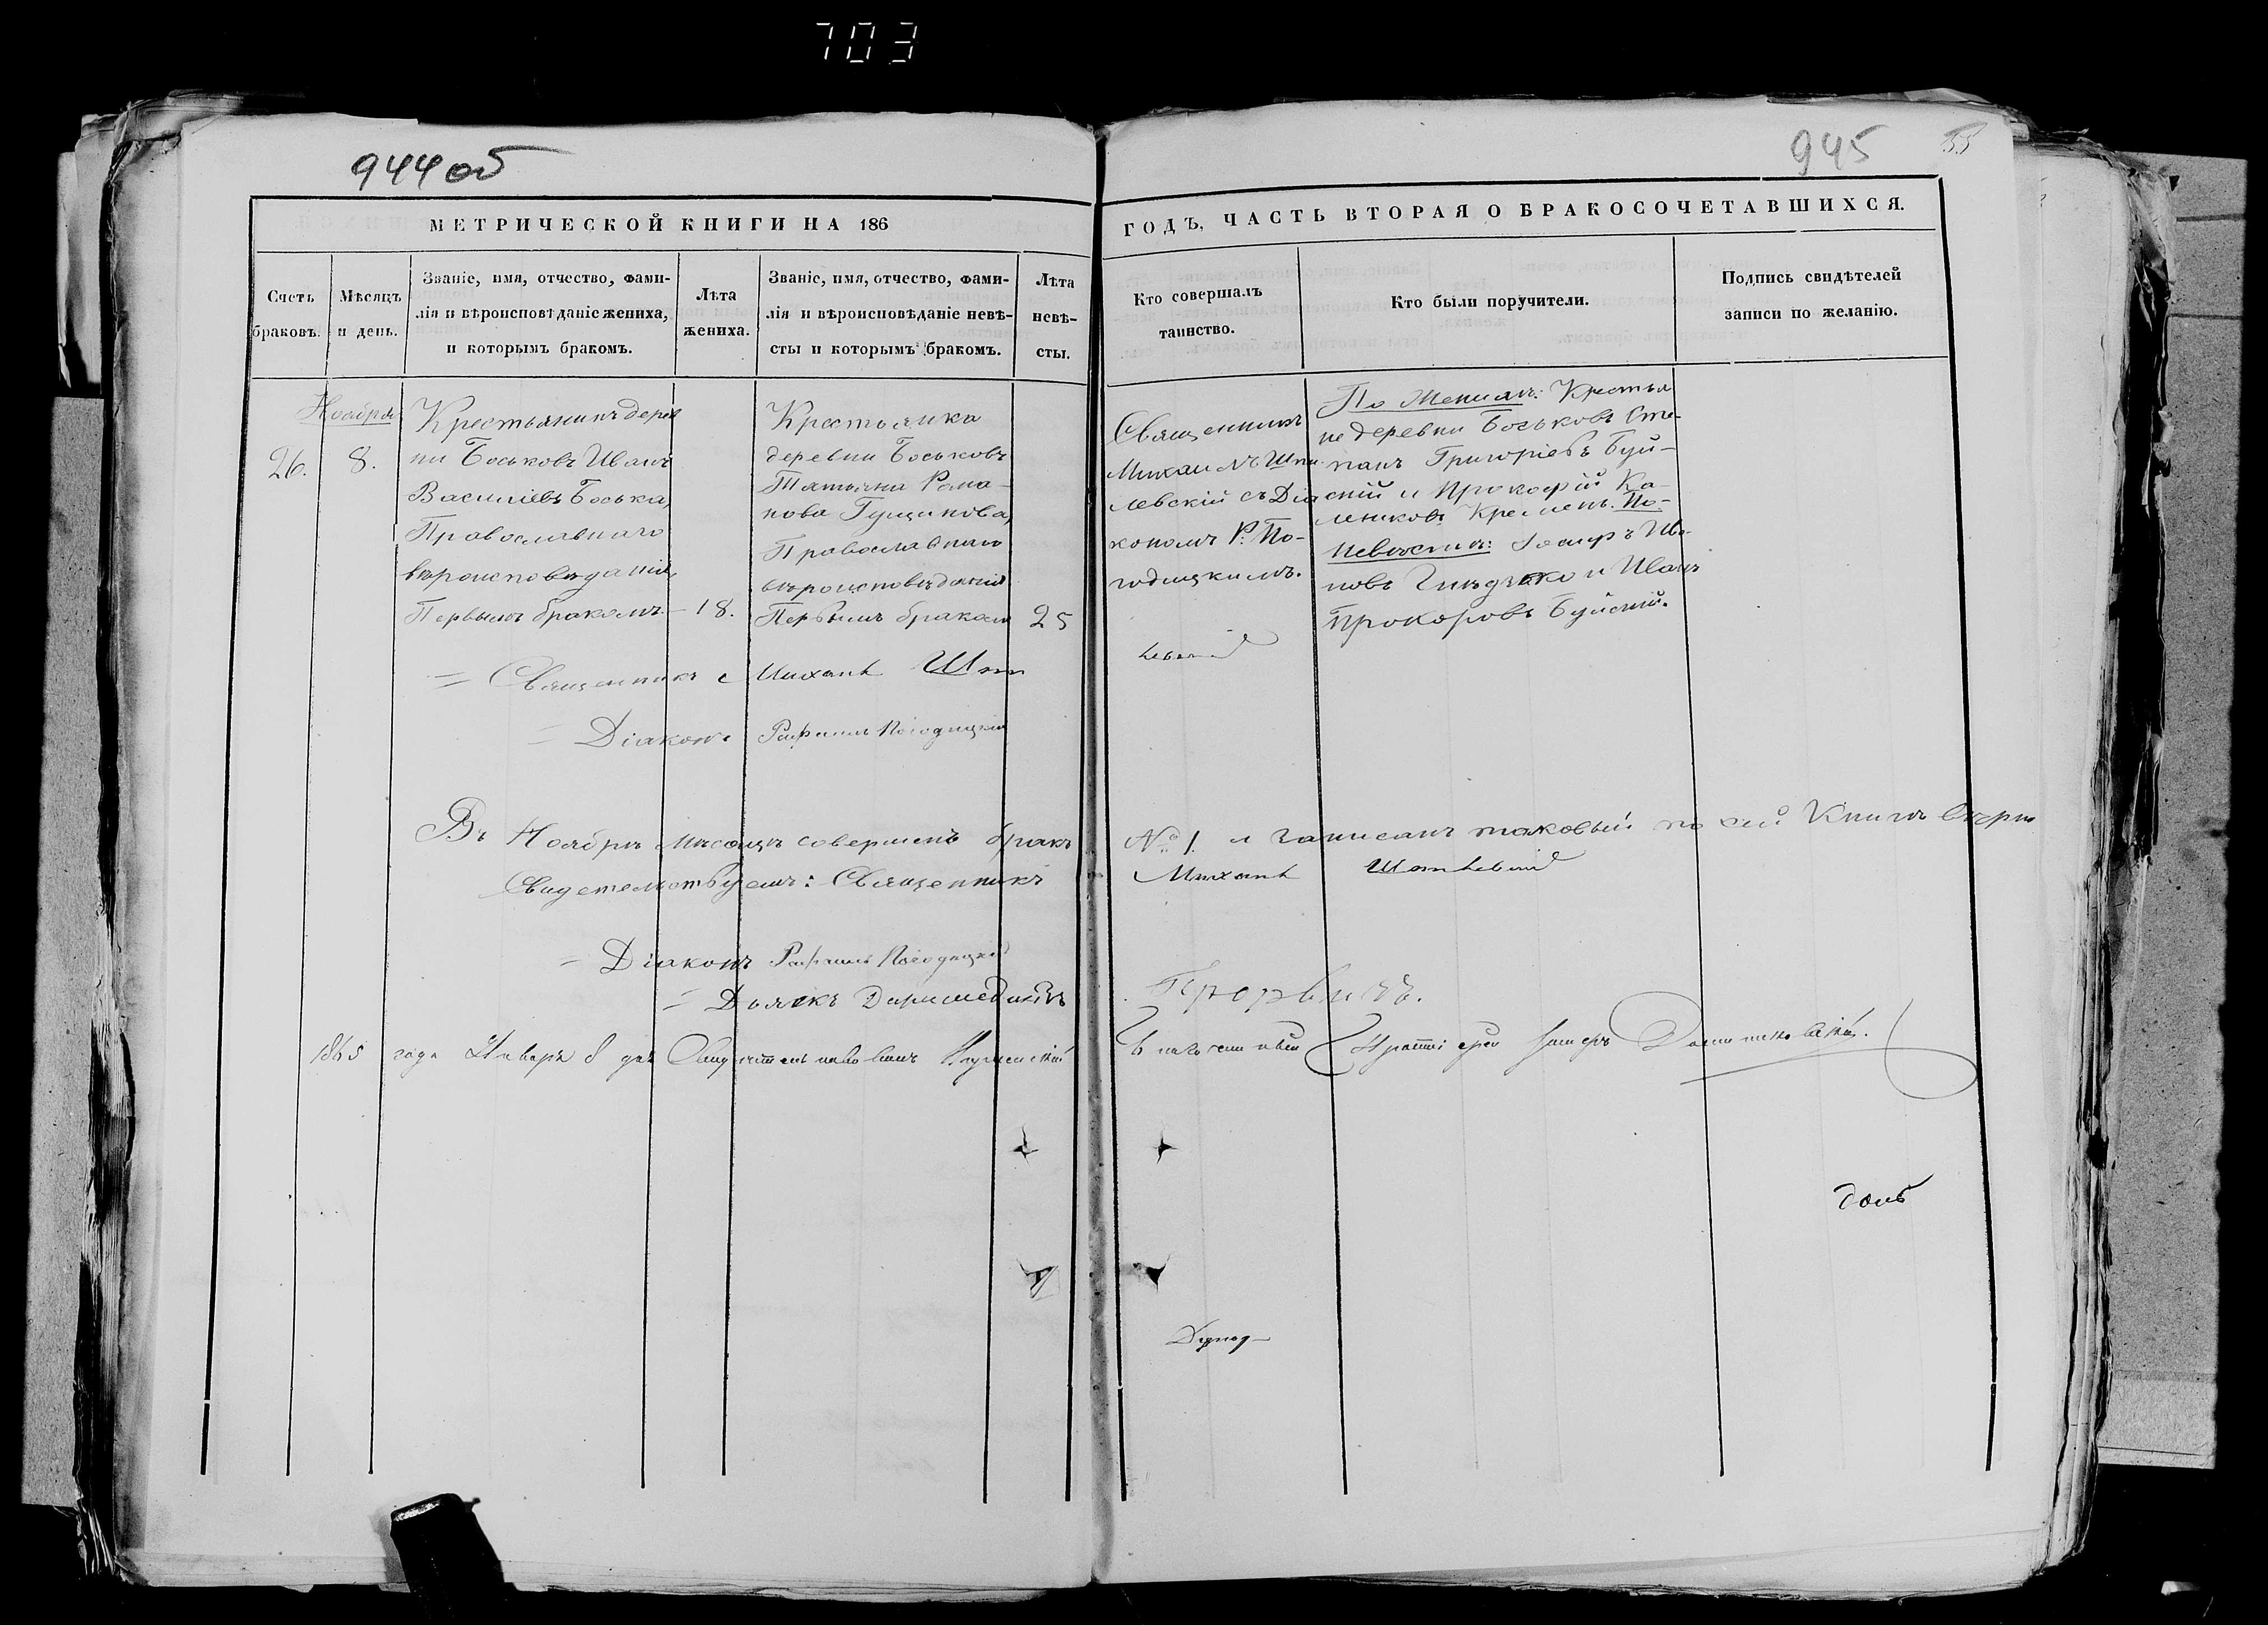 703
944 об
945
55
МЕТРИЧЕСКОЙ КНИГИ НА 186
ГОДЪ, ЧАСТЬ ВТОРАЯ О БРАКОСОЧЕТАВШИХСЯ.
Счетъ
браковъ.
Мѣсяцъ
и день.
Званіе, имя, отчество, фами-
лія и вѣроисповѣданіе жениха,
и которымъ бракомъ.
Лѣта
жениха.
Званіе, имя, отчество, фами-
лія и вѣроисповѣданіе невѣ-
сты и которымъ бракомъ.
Лѣта
невѣ-
сты.
Кто совершалъ
таинство.
Кто были поручители.
Подпись свидѣтелей
записи по желанію.
Ноября
26.
8.
Крестьянинъ дерев
ни Боськовъ Иванъ
Василіевъ Боська,
Православнаго
вѣроисповѣданія,
Первымъ бракомъ.
18.
Крестьянка
деревни Боськовъ
Татьяна Рома-
нова Гущинова,
Православнаго
вѣроисповѣданія
Первымъ бракомъ
25
Священникъ
Михаилъ Шпи
левскій съ Діа
кономъ Р. По-
годицкимъ.
По Женихѣ: Крестья
не деревни Боськовъ Сте-
панъ Григоріевъ Буй-
скій и Прокофій Ка-
леников Кремень. По
Невѣстѣ: Іосифъ Ива-
новъ и Иванъ
Прохоровъ Буйскій.
= Священникъ Михаилъ
= Діаконъ Рафаилъ Погодицкій
Въ Ноябрѣ Мѣсяцѣ совершенъ бракъ № 1 и записанъ таковый по сей Книгѣ вѣрно
Свидетельствуемъ: Священникъ Михаилъ
= Діаконъ Рафаилъ Погодицкій
= Дьячекъ
1865 года Января 8 дня